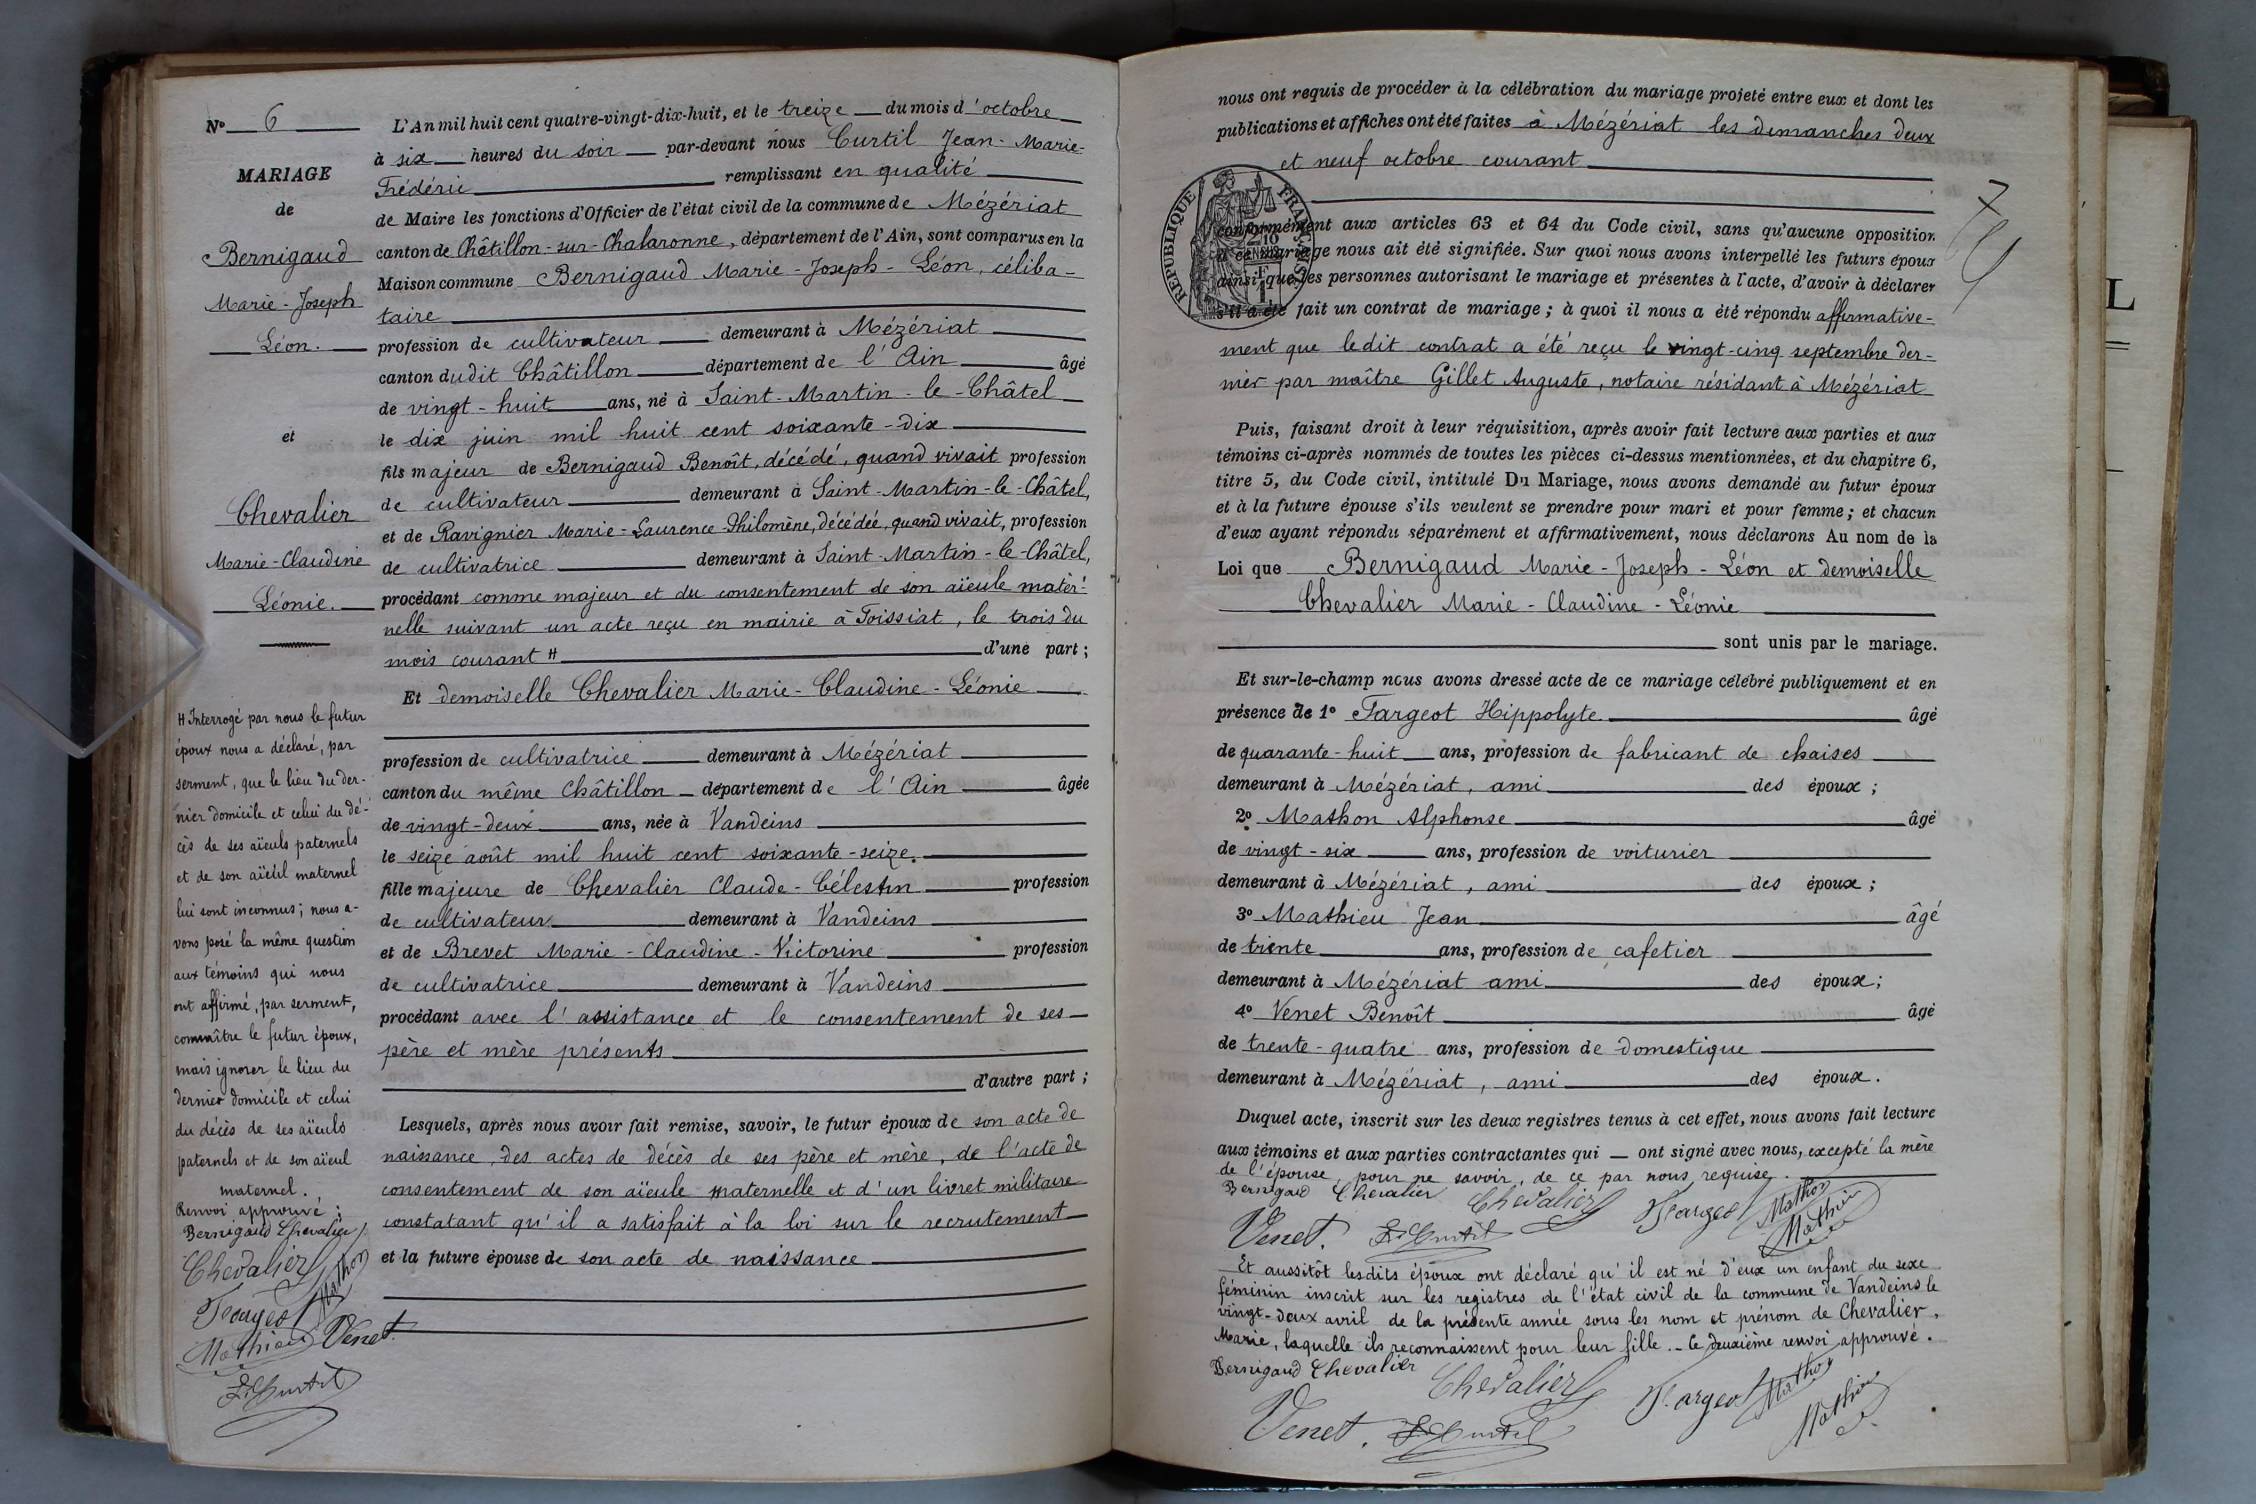 N° 6
MARIAGE
de
Bernigaud
Marie-Joseph
Léon.
et
Chevalier
Marie-Claudine
Léonie.
L'An mil huit cent quatre-vingt-dix-huit, et le treize du mois d'octobre
à six heures du soir par-devant nous Curtil Jean-Marie-
Frédéric remplissant en qualité
de Maire les fonctions d'Officier de l'état civil de la commune de Mézériat
canton de Châtillon-sur-Chalaronne, département de l'Ain, sont comparus en la
Maison commune Bernigaud Marie-Joseph-Léon, céliba-
taire
profession de cultivateur demeurant à Mézériat
canton dudit Châtillon département de l'Ain âgé
de vingt-huit ans, né à Saint-Martin-le-Châtel
le dix juin mil huit cent soixante-dix
fils majeur de Bernigaud Benoît, décédé, quand vivait profession
de cultivateur demeurant à Saint-Martin-le-Châtel,
et de Ravignier Marie-Laurence-Philomène, décédée, quand vivait, profession
de cultivatrice demeurant à Saint-Martin-le-Châtel,
procédant comme majeur et du consentement de son aïeule mater-
nelle suivant un acte reçu en mairie à Foissiat, le trois du
mois courant # d'une part;
Et demoiselle Chevalier Marie-Claudine-Léonie
profession de cultivatrice demeurant à Mézériat
canton du même Châtillon département de l'Ain âgée
de vingt-deux ans, née à Vandeins
le seize août mil huit cent soixante-seize.
fille majeure de Chevalier Claude-Célestin profession
de cultivateur demeurant à Vandeins
et de Brevet Marie-Claudine-Victorine profession
de cultivatrice demeurant à Vandeins
procédant avec l'assistance et le consentement de ses
père et mère présents
d'autre part;
Lesquels, après nous avoir fait remise, savoir, le futur époux de son acte de
naissance, des actes de décès de ses père et mère, de l'acte de
consentement de son aïeule maternelle et d'un livret militaire
constatant qu'il a satisfait à la loi sur le recrutement
et la future épouse de son acte de naissance
# Interrogé par nous le futur
époux nous a déclaré, par
serment, que le lieu du der-
nier domicile et celui du dé-
cès de ses aïeuls paternels
et de son aïeul maternel
lui sont inconnus; nous a-
vons posé la même question
aux témoins qui nous
ont affirmé, par serment,
connaître le futur époux,
mais ignorer le lieu du
dernier domicile et celui
du décès de ses aïeuls
paternels et de son aïeul
maternel.
Renvoi approuvé:
Bernigaud Chevalier
Chevalier
Fargeot Mathon
Mathieu Venet.
F. Curtil
nous ont requis de procéder à la célébration du mariage projeté entre eux et dont les
publications et affiches ont été faites à Mézériat les dimanches deux
et neuf octobre courant
RÉPUBLIQUE FRANÇAISE
conformément aux articles 63 et 64 du Code civil, sans qu'aucune opposition
à ce mariage nous ait été signifiée. Sur quoi nous avons interpellé les futurs époux
ainsi que les personnes autorisant le mariage et présentes à l'acte, d'avoir à déclarer
s'il a été fait un contrat de mariage; à quoi il nous a été répondu affirmative-
ment que ledit contrat a été reçu le vingt-cinq septembre der-
nier par maître Gillet Auguste, notaire résidant à Mézériat
Puis, faisant droit à leur réquisition, après avoir fait lecture aux parties et aux
témoins ci-après nommés de toutes les pièces ci-dessus mentionnées, et du chapitre 6,
titre 5, du Code civil, intitulé Du Mariage, nous avons demandé au futur époux
et à la future épouse s'ils veulent se prendre pour mari et pour femme; et chacun
d'eux ayant répondu séparément et affirmativement, nous déclarons Au nom de la
Loi que Bernigaud Marie-Joseph-Léon et demoiselle
Chevalier Marie-Claudine-Léonie
sont unis par le mariage.
Et sur-le-champ nous avons dressé acte de ce mariage célébré publiquement et en
présence de 1° Fargeot Hippolyte âgé
de quarante-huit ans, profession de fabricant de chaises
demeurant à Mézériat, ami des époux;
2° Mathon Alphonse âgé
de vingt-six ans, profession de voiturier
demeurant à Mézériat, ami des époux;
3° Mathieu Jean âgé
de trente ans, profession de cafetier
demeurant à Mézériat ami des époux;
4° Venet Benoît âgé
de trente-quatre ans, profession de domestique
demeurant à Mézériat, ami des époux.
Duquel acte, inscrit sur les deux registres tenus à cet effet, nous avons fait lecture
aux témoins et aux parties contractantes qui ont signé avec nous, excepté la mère
de l'épouse, pour ne savoir, de ce par nous requise.
Bernigaud Chevalier Chevalier Fargeot Mathon
Venet. F. Curtil Mathieu
Et aussitôt lesdits époux ont déclaré qu'il est né d'eux un enfant du sexe
féminin inscrit sur les registres de l'état civil de la commune de Vandeins le
vingt-deux avril de la présente année sous les nom et prénom de Chevalier,
Marie, laquelle ils reconnaissent pour leur fille. - Ce deuxième renvoi approuvé.
Bernigaud Chevalier Chevalier Fargeot Mathon
Venet. F. Curtil Mathieu
L